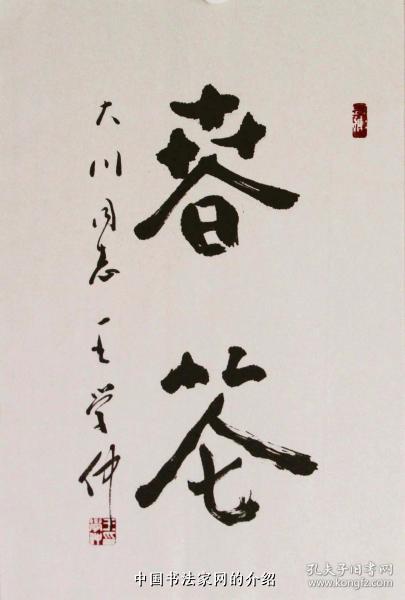 春花
大川同志 王学仲
中国书法家网的介绍
孔夫子旧书网
www.kongfz.com